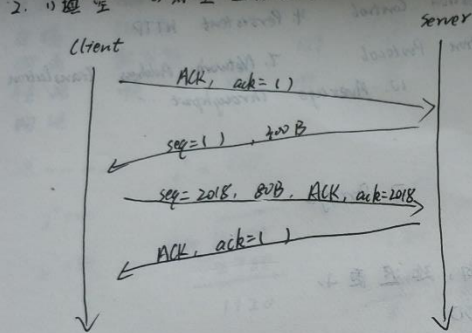 2. 1)
Client
Server
ACK, ack=( )
seq=( ), 400B
seq=2018, 80B, ACK, ack=2018
ACK, ack=( )